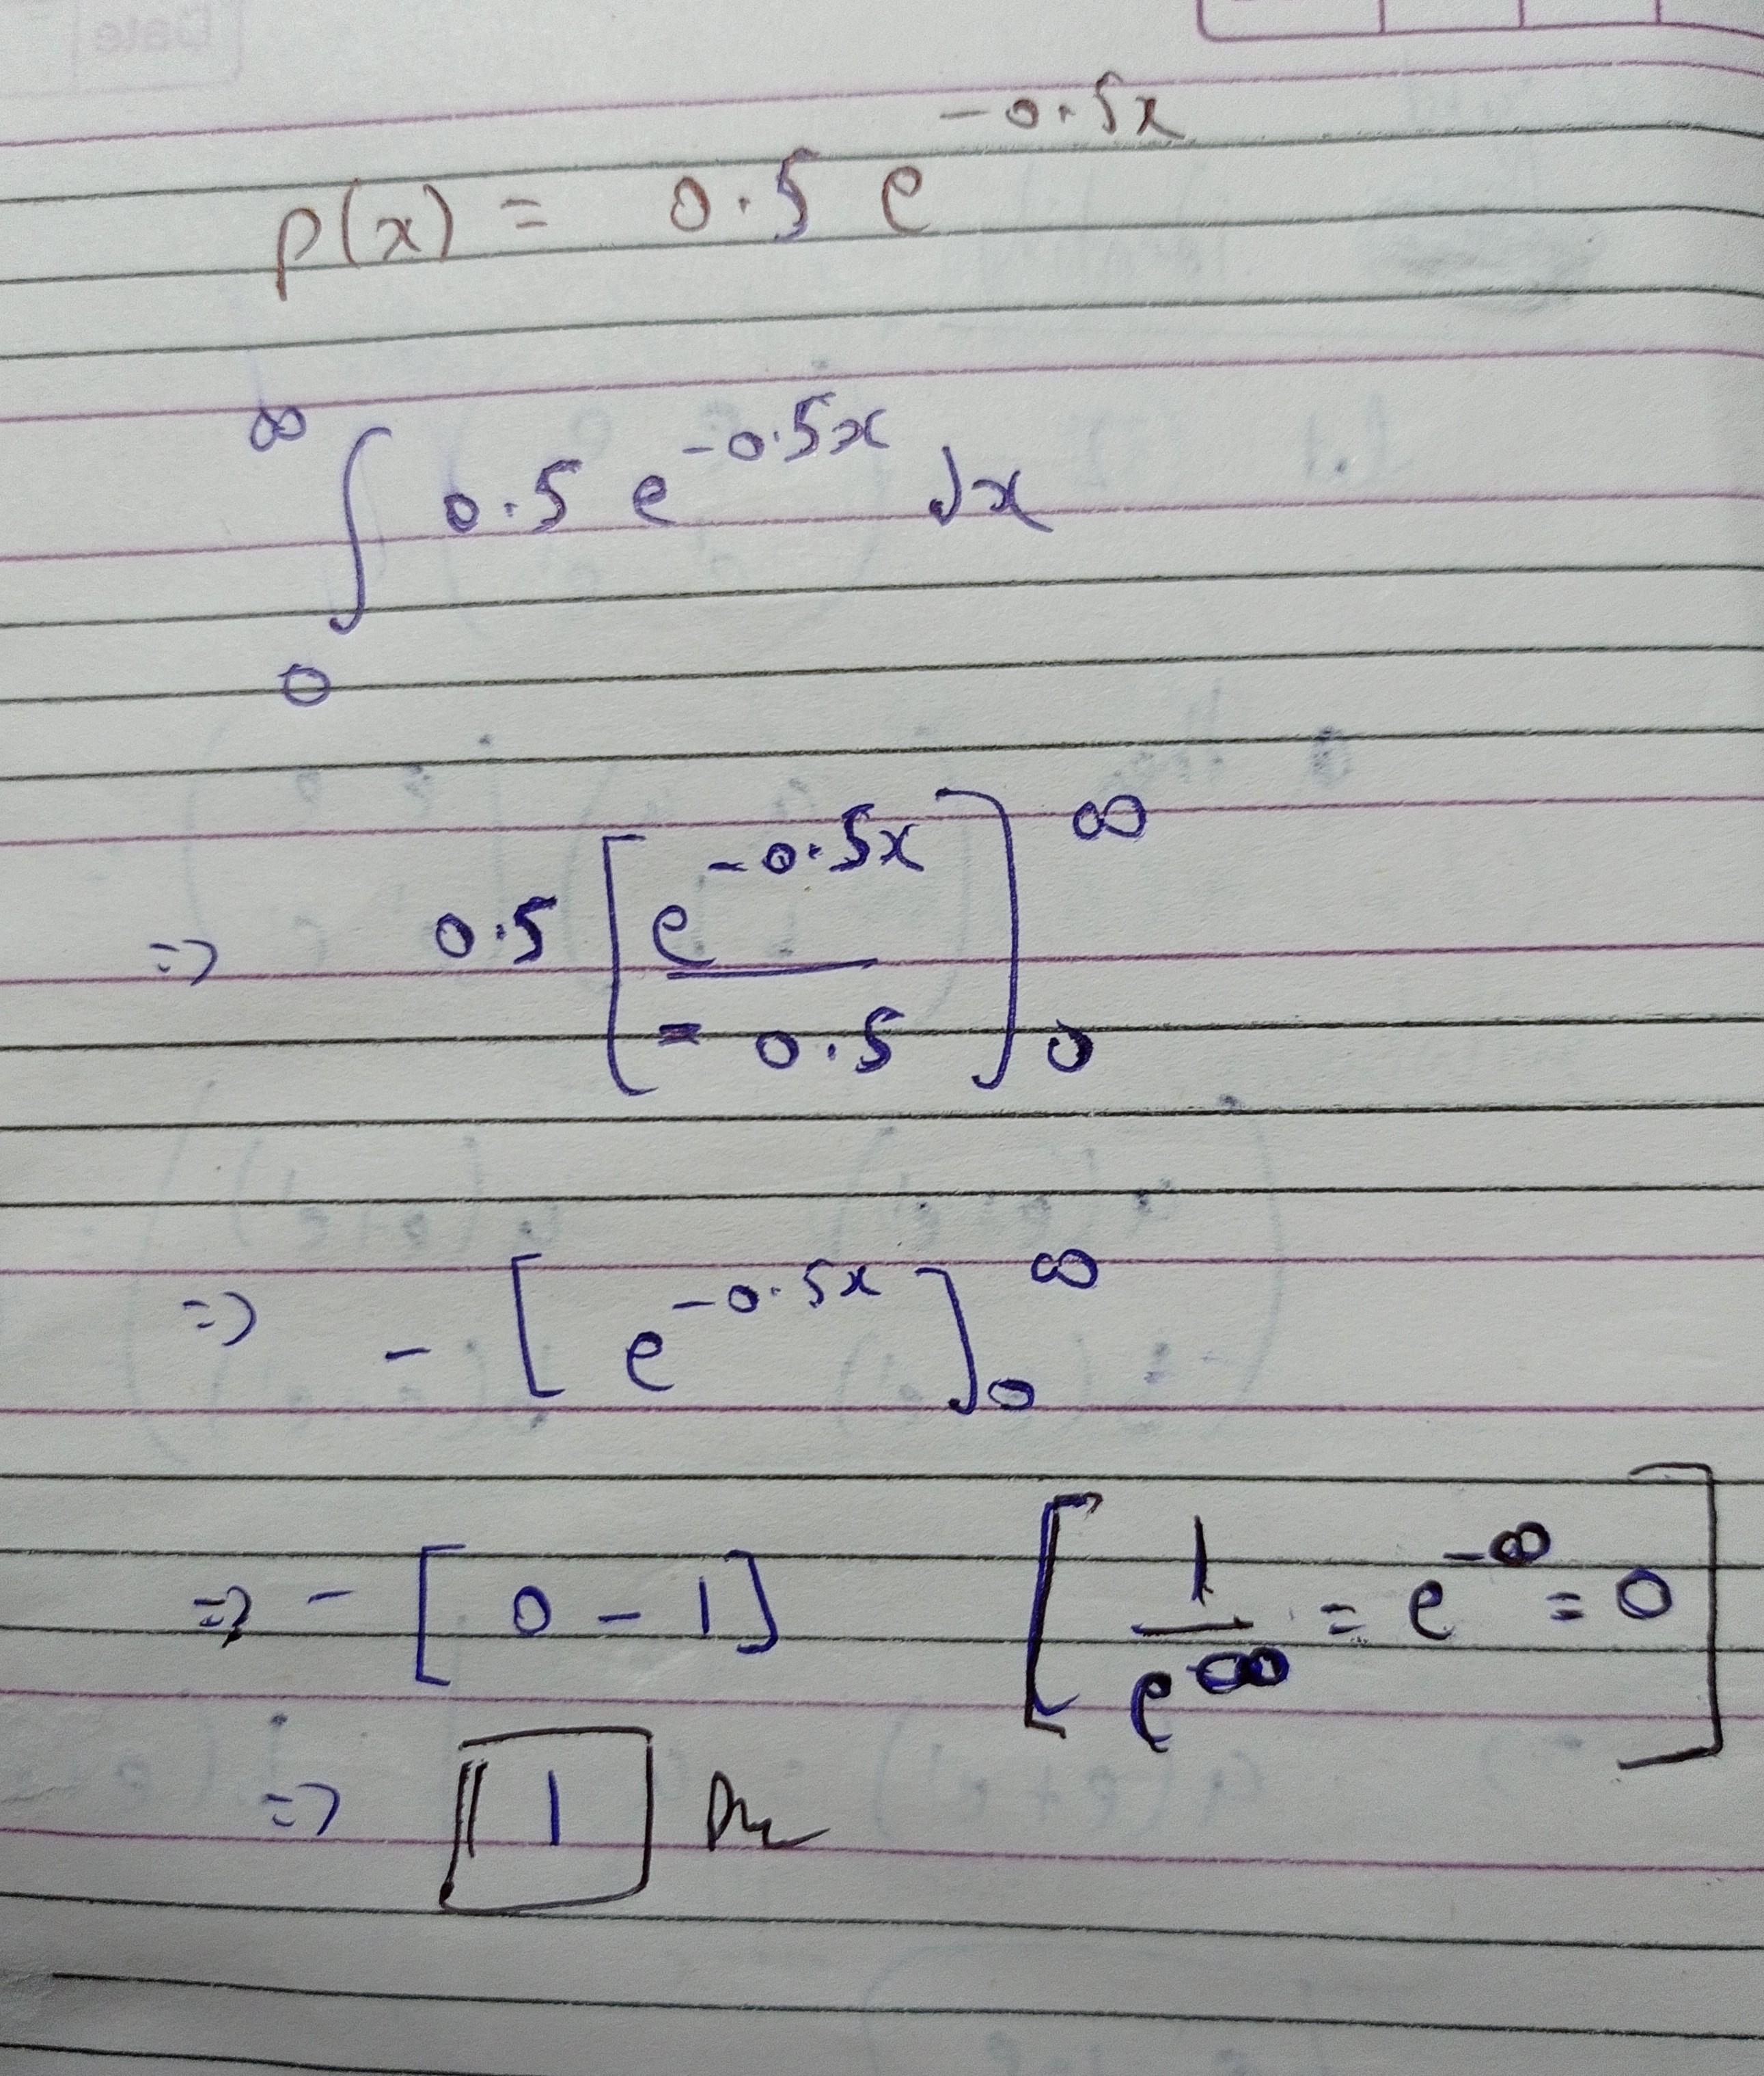 p(x) = 0.5 e^{-0.5x}
∫_0^∞ 0.5 e^{-0.5x} dx
=> 0.5 [ e^{-0.5x} / -0.5 ]_0^∞
=> - [ e^{-0.5x} ]_0^∞
=> - [ 0 - 1 ] [ 1 / e^∞ = e^{-∞} = 0 ]
=> 1